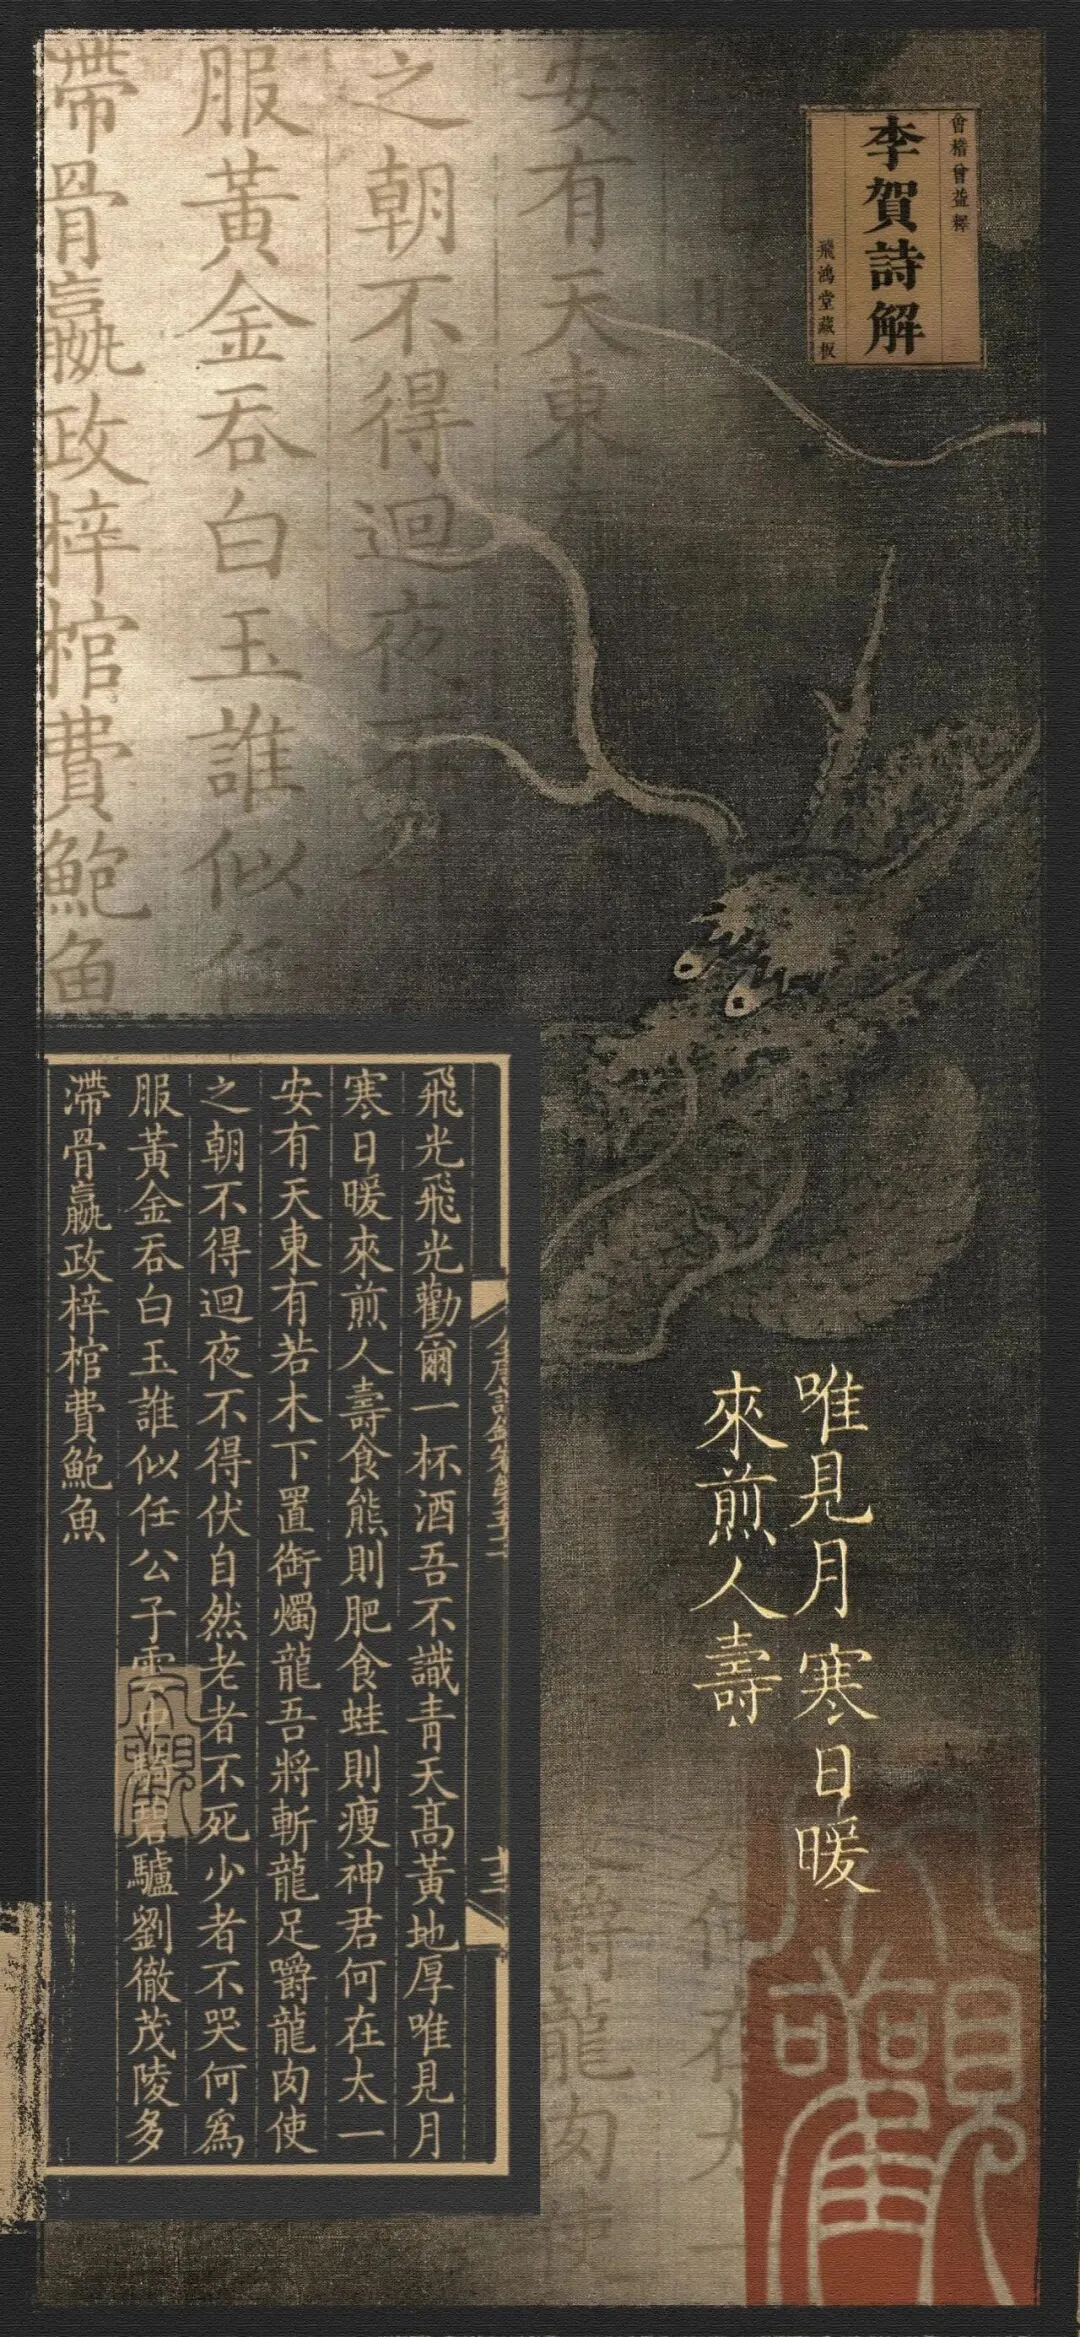 會稽曾益釋
李賀詩解
飛鴻堂藏板
安有天東
之朝不得迴夜不
服黃金吞白玉誰似任
滯骨嬴政梓棺費鮑魚
飛光飛光勸爾一杯酒吾不識青天高黃地厚唯見月
寒日暖來煎人壽食熊則肥食蛙則瘦神君何在太一
安有天東有若木下置銜燭龍吾將斬龍足嚼龍肉使
之朝不得迴夜不得伏自然老者不死少者不哭何為
服黃金吞白玉誰似任公子雲中騎碧驢劉徹茂陵多
滯骨嬴政梓棺費鮑魚
十三
唯見月寒日暖
來煎人壽
嚼龍肉使
大觀